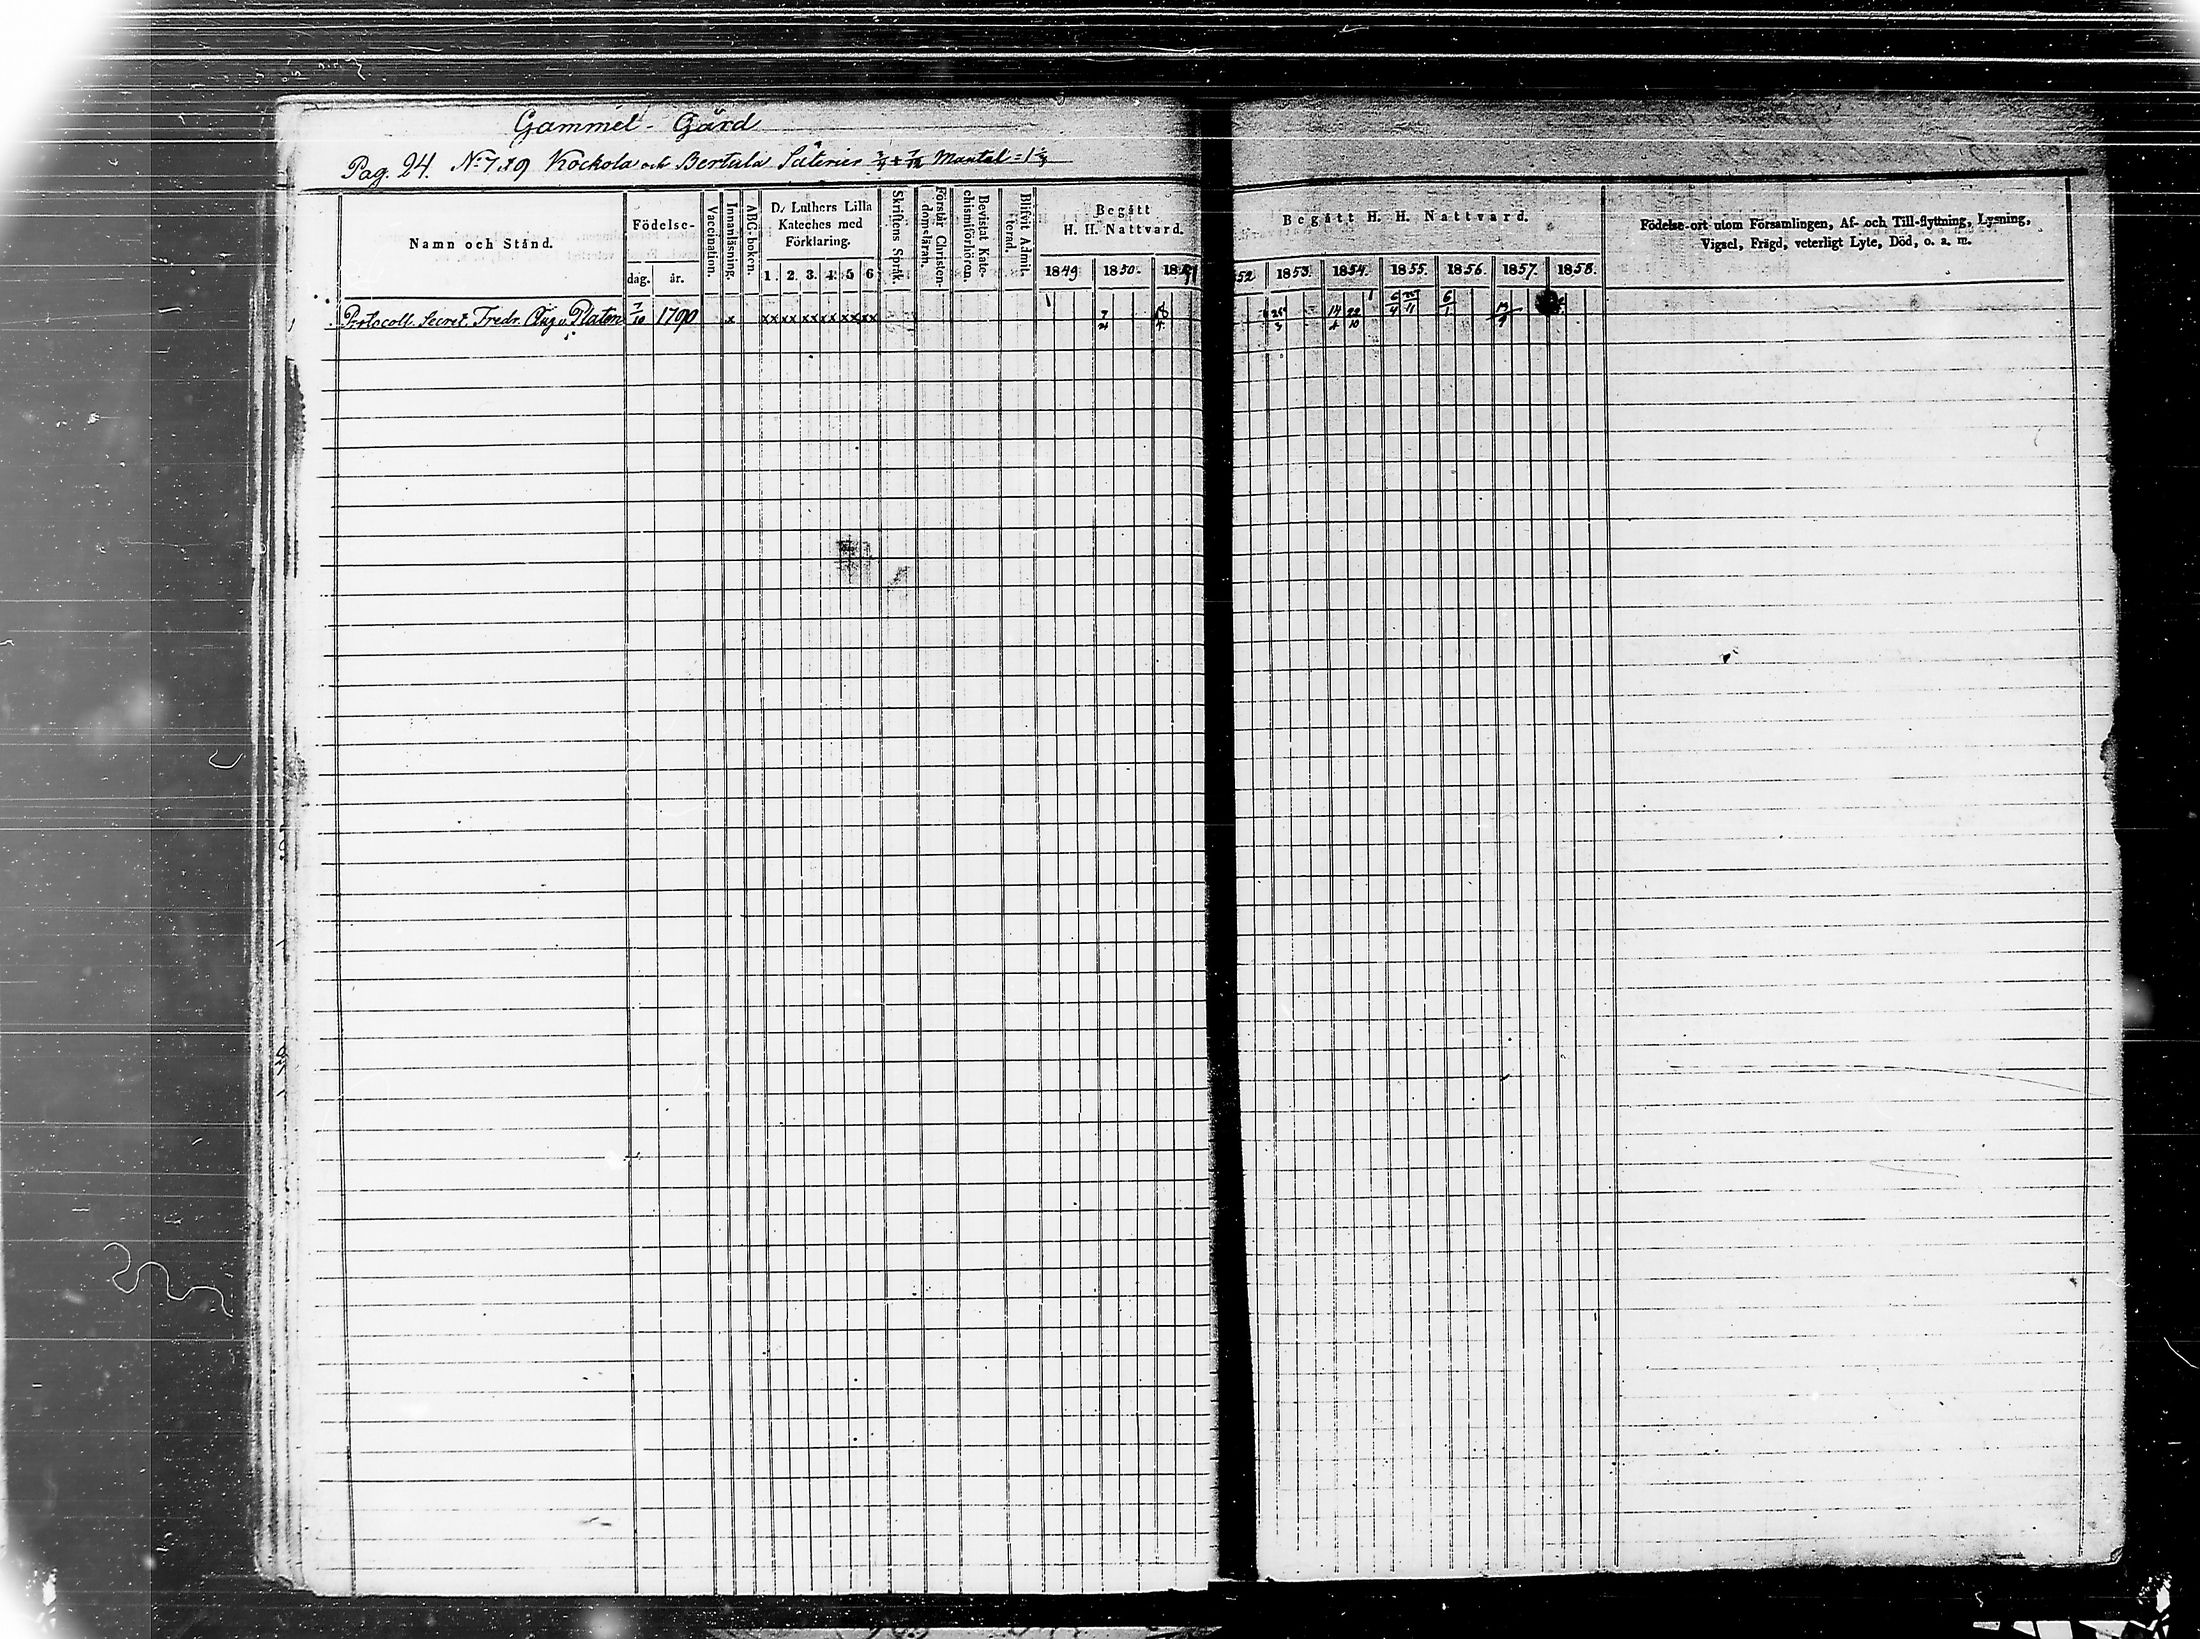 Gammel-Gård
Pag. 24. No 7 & 9 Kockola och Bertula Säterier Mantal = 1
Namn och Stånd.
Födelse-
dag. år.
Vaccination.
Innanläsning.
ABC-boken.
D. Luthers Lilla
Kateches med
Förklaring.
1. 2. 3. 4. 5 6
Skriftens Språk.
Förstår Christen-
domsläran.
Bevistat Kate-
chismiförhören.
Blifvit Admit-
terad.
Begått
H. H. Nattvard.
1849 1850. 1851
Begått H. H. Nattvard.
52 1853. 1854. 1855. 1856. 1857. 1858.
Födelse-ort utom Församlingen, Af- och Till-flyttning, Lysning,
Vigsel, Frägd, veterligt Lyte, Död, o. a. m.
Protocoll. Secret. Fredr. Aug. v. Platen 7/10 1790 x xx xx xx xx xx xx 7/4 25/3 14/4 22/10 6/4 6/1